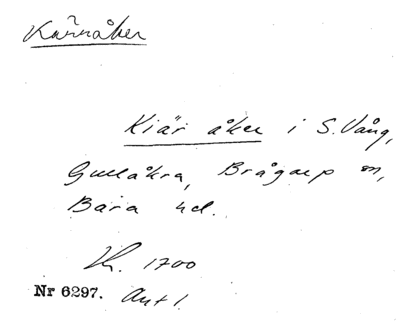 Kärråker
Kiär åker i S. Vång,
Gullåkra, Brågarp sn,
Bara hd.
Lh. 1700
Nr 6297. Ant 1.